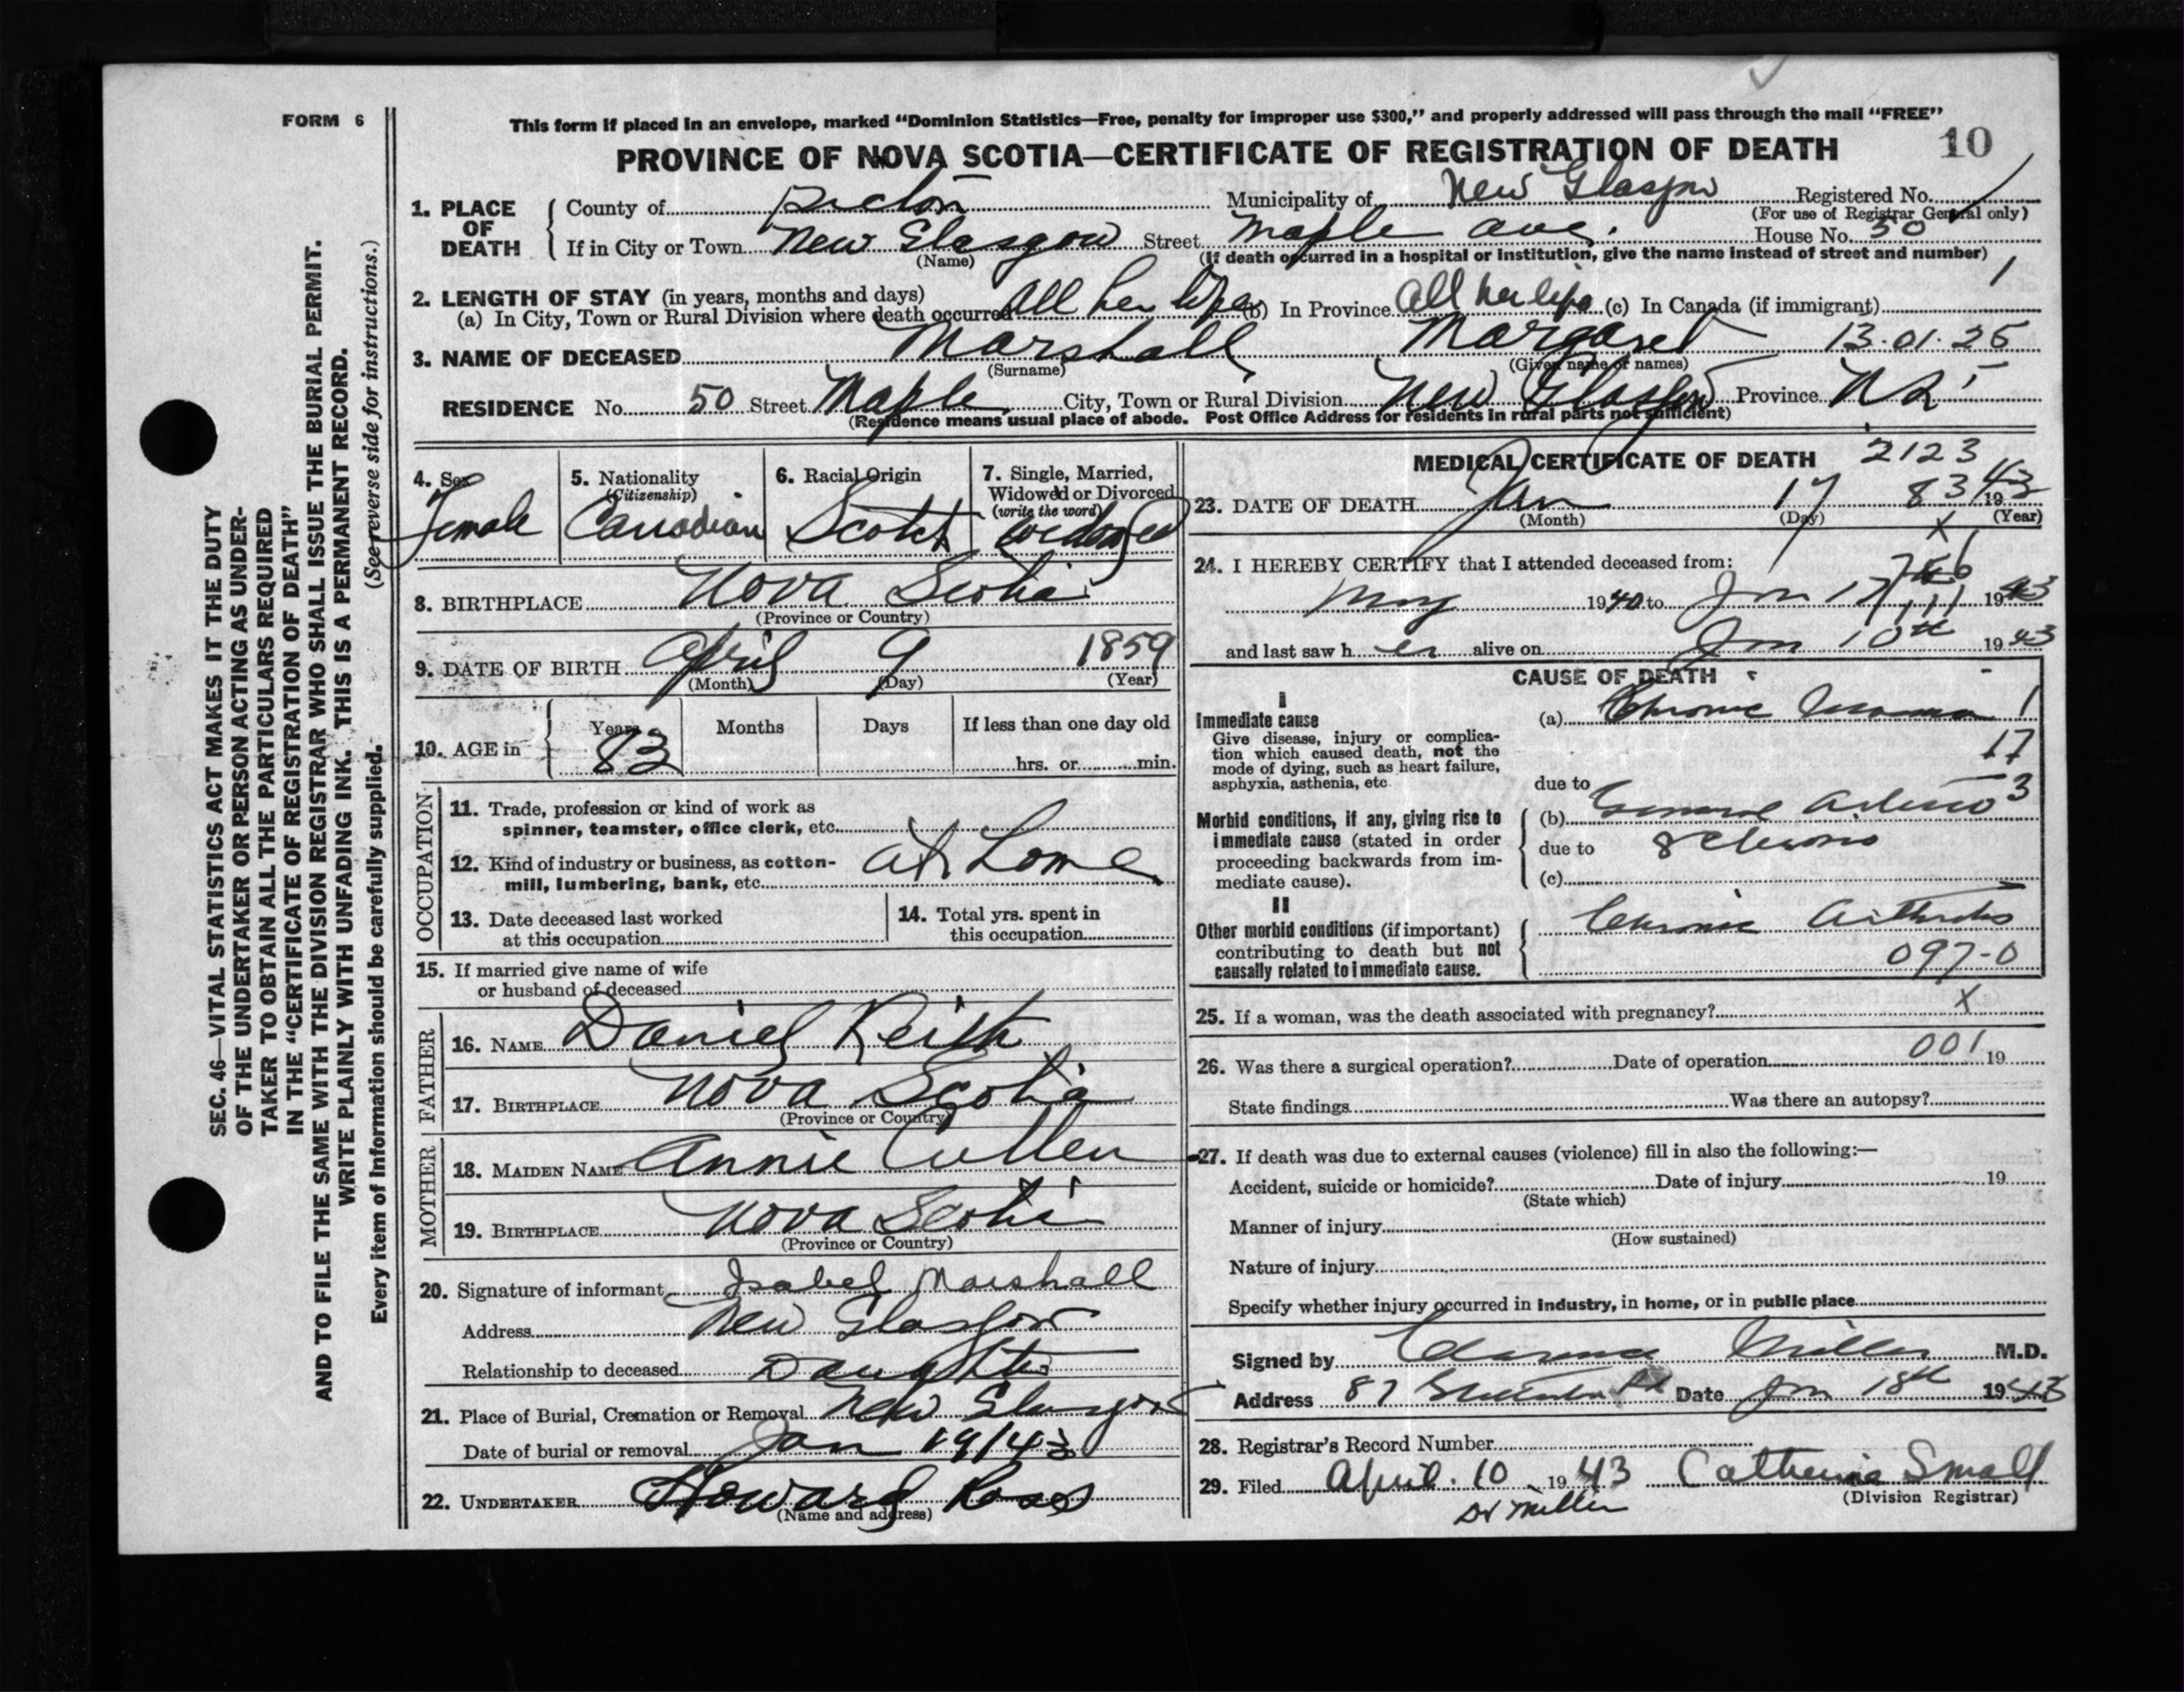 FORM 6
This form if placed in an envelope, marked "Dominion Statistics—Free, penalty for improper use $300," and properly addressed will pass through the mail "FREE"
PROVINCE OF NOVA SCOTIA—CERTIFICATE OF REGISTRATION OF DEATH 10
1. PLACE OF DEATH { County of Pictou Municipality of New Glasgow Registered No.
(For use of Registrar General only)
If in City or Town New Glasgow Street Maple Ave. House No. 50
(Name) (If death occurred in a hospital or institution, give the name instead of street and number)
2. LENGTH OF STAY (in years, months and days)
(a) In City, Town or Rural Division where death occurred All her life (b) In Province All her life (c) In Canada (if immigrant) 1
3. NAME OF DECEASED Marshall Margaret 13.01.25
(Surname) (Given name or names)
RESIDENCE No. 50 Street Maple City, Town or Rural Division New Glasgow Province N S
(Residence means usual place of abode. Post Office Address for residents in rural parts not sufficient)
4. Sex Female
5. Nationality (Citizenship) Canadian
6. Racial Origin Scotch
7. Single, Married, Widowed or Divorced (write the word) Widowed
8. BIRTHPLACE Nova Scotia
(Province or Country)
9. DATE OF BIRTH April 9 1859
(Month) (Day) (Year)
10. AGE in { Years 83 Months Days If less than one day old
hrs. or min.
OCCUPATION
11. Trade, profession or kind of work as
spinner, teamster, office clerk, etc.
12. Kind of industry or business, as cotton-
mill, lumbering, bank, etc. at home
13. Date deceased last worked
at this occupation
14. Total yrs. spent in
this occupation
15. If married give name of wife
or husband of deceased
FATHER
16. NAME Daniel Keith
17. BIRTHPLACE Nova Scotia
(Province or Country)
MOTHER
18. MAIDEN NAME Annie Cullen
19. BIRTHPLACE Nova Scotia
(Province or Country)
20. Signature of informant Isabel Marshall
Address New Glasgow
Relationship to deceased Daughter
21. Place of Burial, Cremation or Removal New Glasgow
Date of burial or removal Jan 19/43
22. UNDERTAKER Howard Ross
(Name and address)
MEDICAL CERTIFICATE OF DEATH 2123
23. DATE OF DEATH Jan 17 83 1943
(Month) (Day) (Year)
X
24. I HEREBY CERTIFY that I attended deceased from:
May 1940 to Jan 17 1943
and last saw h er alive on Jan 10th 1943
CAUSE OF DEATH
I
Immediate cause (a) Chronic 1
Give disease, injury or complica-
tion which caused death, not the
mode of dying, such as heart failure,
asphyxia, asthenia, etc.
17
due to
Morbid conditions, if any, giving rise to
immediate cause (stated in order
proceeding backwards from im-
mediate cause).
(b) General Arterio 3
due to Sclerosis
(c)
II
Other morbid conditions (if important)
contributing to death but not
causally related to immediate cause.
Chronic Arthritis
097-0
25. If a woman, was the death associated with pregnancy? X
26. Was there a surgical operation? Date of operation 001 19
State findings Was there an autopsy?
27. If death was due to external causes (violence) fill in also the following:—
Accident, suicide or homicide? Date of injury 19
(State which)
Manner of injury
(How sustained)
Nature of injury
Specify whether injury occurred in industry, in home, or in public place
Signed by Clarence Miller M.D.
Address 87 Date Jan 18th 1943
28. Registrar's Record Number
29. Filed April 10 1943 Catherine Small
(Division Registrar)
Dr Miller
SEC. 46—VITAL STATISTICS ACT MAKES IT THE DUTY
OF THE UNDERTAKER OR PERSON ACTING AS UNDER-
TAKER TO OBTAIN ALL THE PARTICULARS REQUIRED
IN THE "CERTIFICATE OF REGISTRATION OF DEATH"
AND TO FILE THE SAME WITH THE DIVISION REGISTRAR WHO SHALL ISSUE THE BURIAL PERMIT.
WRITE PLAINLY WITH UNFADING INK. THIS IS A PERMANENT RECORD.
Every item of information should be carefully supplied. (See reverse side for instructions.)